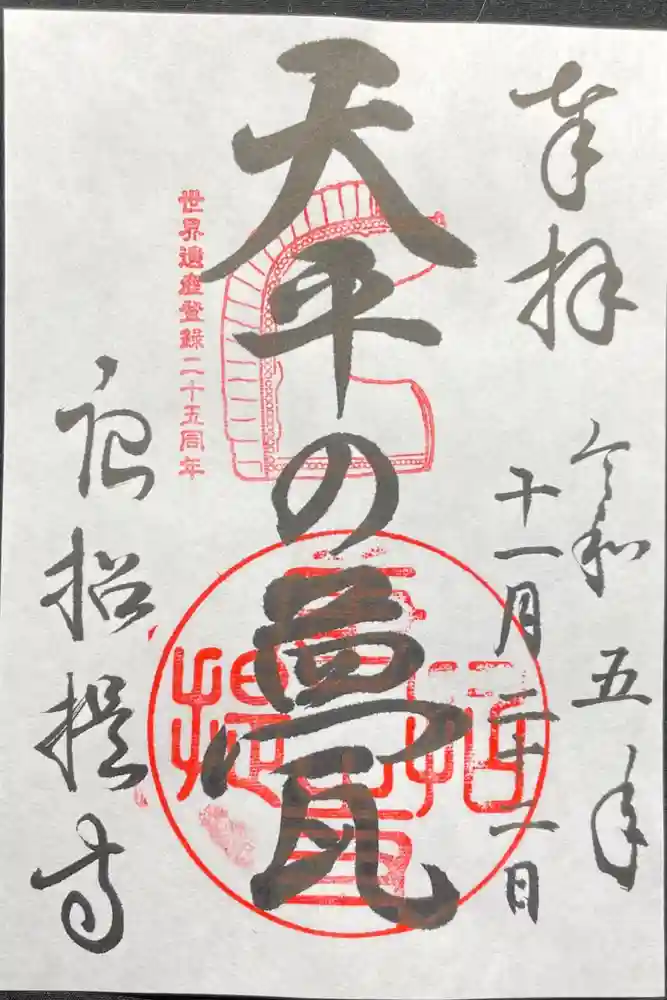 奉拝
令和五年
十一月二十二日
天平の甍
世界遺産登録二十五周年
唐招提寺